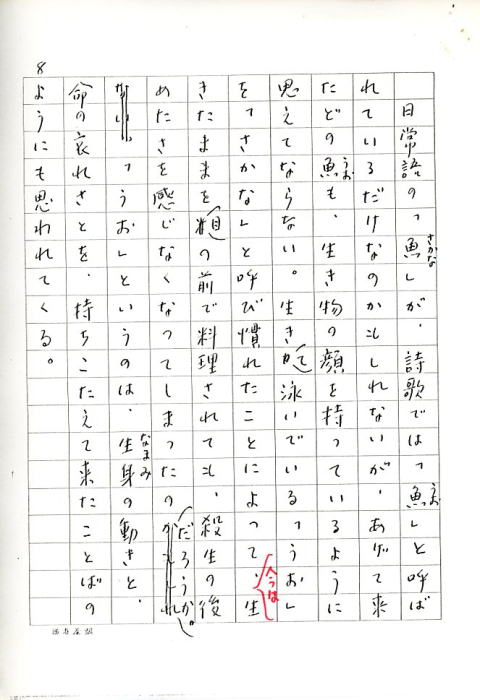 8
日常語の「魚さかな」が、詩歌では「魚うお」と呼ば
れているだけなのかもしれないが、あげて来
たどの魚うおも、生き物の顔を持っているように
思えてならない。生きて泳いでいる「うお」
を「さかな」と呼び慣れたことによって、生
きたままを目の前で料理されても、殺生の後
めたさを感じなくなってしまったのだろうか。
「うお」というのは、生身なまみの動きと、
命の哀れさとを、持ちこたえて来たことばの
ようにも思われてくる。